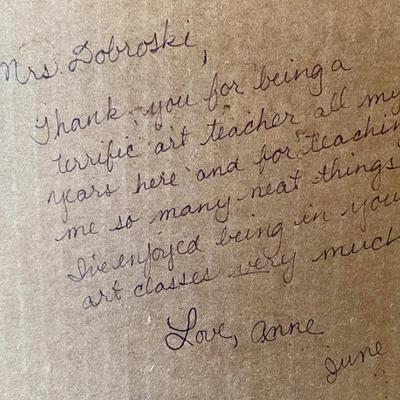 Mrs. Dobroski,
Thank you for being a
terrific art teacher all my
years here and for teachin
me so many neat things
I've enjoyed being in you
art classes very much
Love, Anne
June